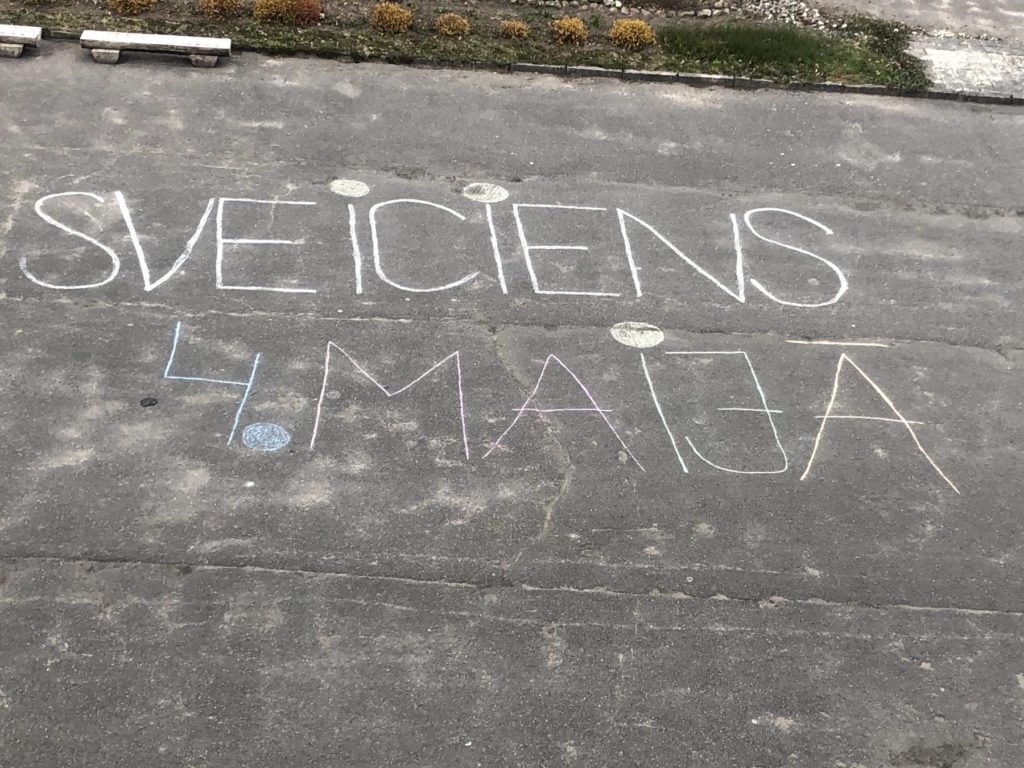 SVEiCiENS
4. MAiJĀ